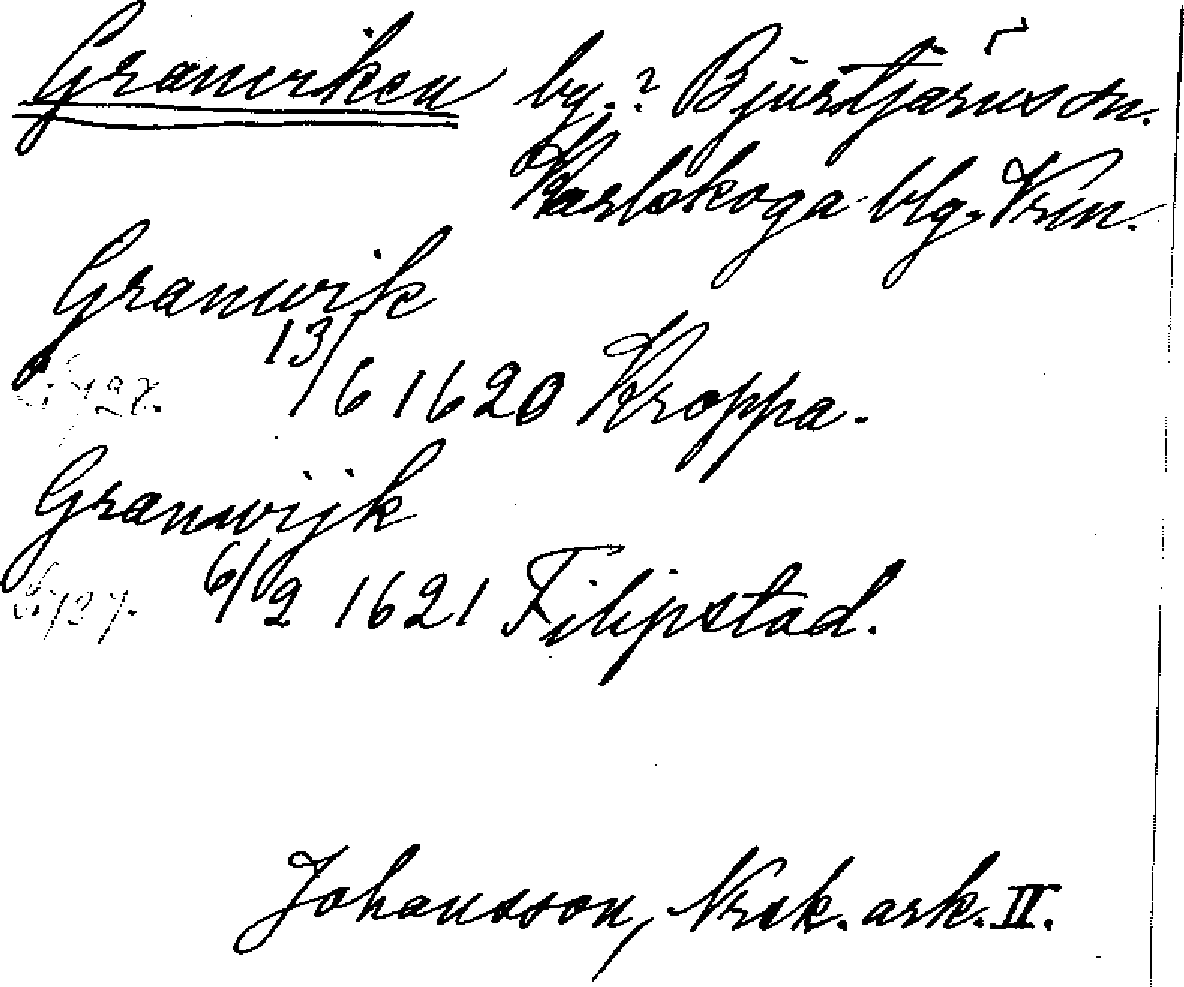 Granviken by.? Bjurtjärns sn.
Karlskoga blg. Vrm.
Granwik
13/6 1620 Kroppa.
Granwijk
6/2 1621 Filipstad.
Johansson, Nrsk. ark. II.